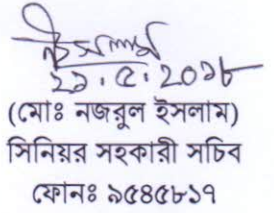 ২১.৫.২০১৮
(মোঃ নজরুল ইসলাম)
সিনিয়র সহকারী সচিব
ফোনঃ ৯৫৪৫৮১৭